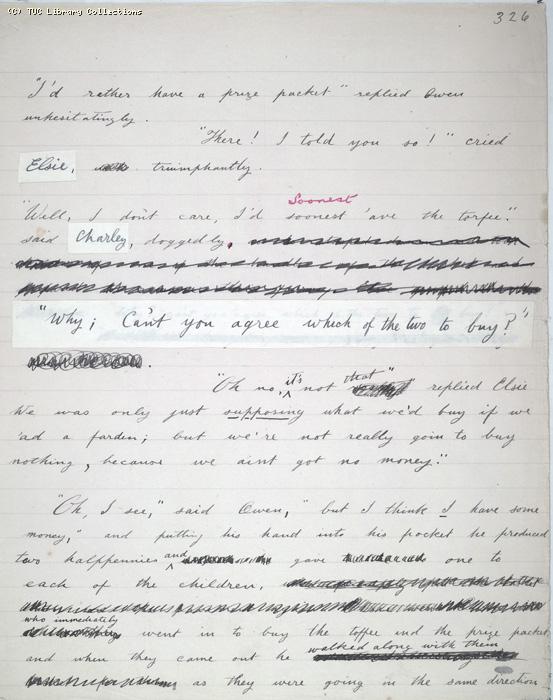 (C) TUC Library Collections
326
"I'd rather have a prize packet" replied Owen
unhesitatingly.
"There! I told you so!" cried
Elsie, triumphantly.
Soonest
"Well, I don't care, I'd soonest 'ave the torfee."
said Charley, doggedly.
"Why; Can't you agree which of the two to buy?"
"Oh no, it's not that" replied Elsie
We was only just supposing what we'd buy if we
'ad a farden; but we're not really goin to buy
nothing, because we aint got no money."
"Oh, I see," said Owen, "but I think I have some
money," and putting his hand into his pocket he produced
two halfpennies and gave one to
each of the children,
who immediately went in to buy the toffee and the prize packet
and when they came out he walked along with them
as they were going in the same direction